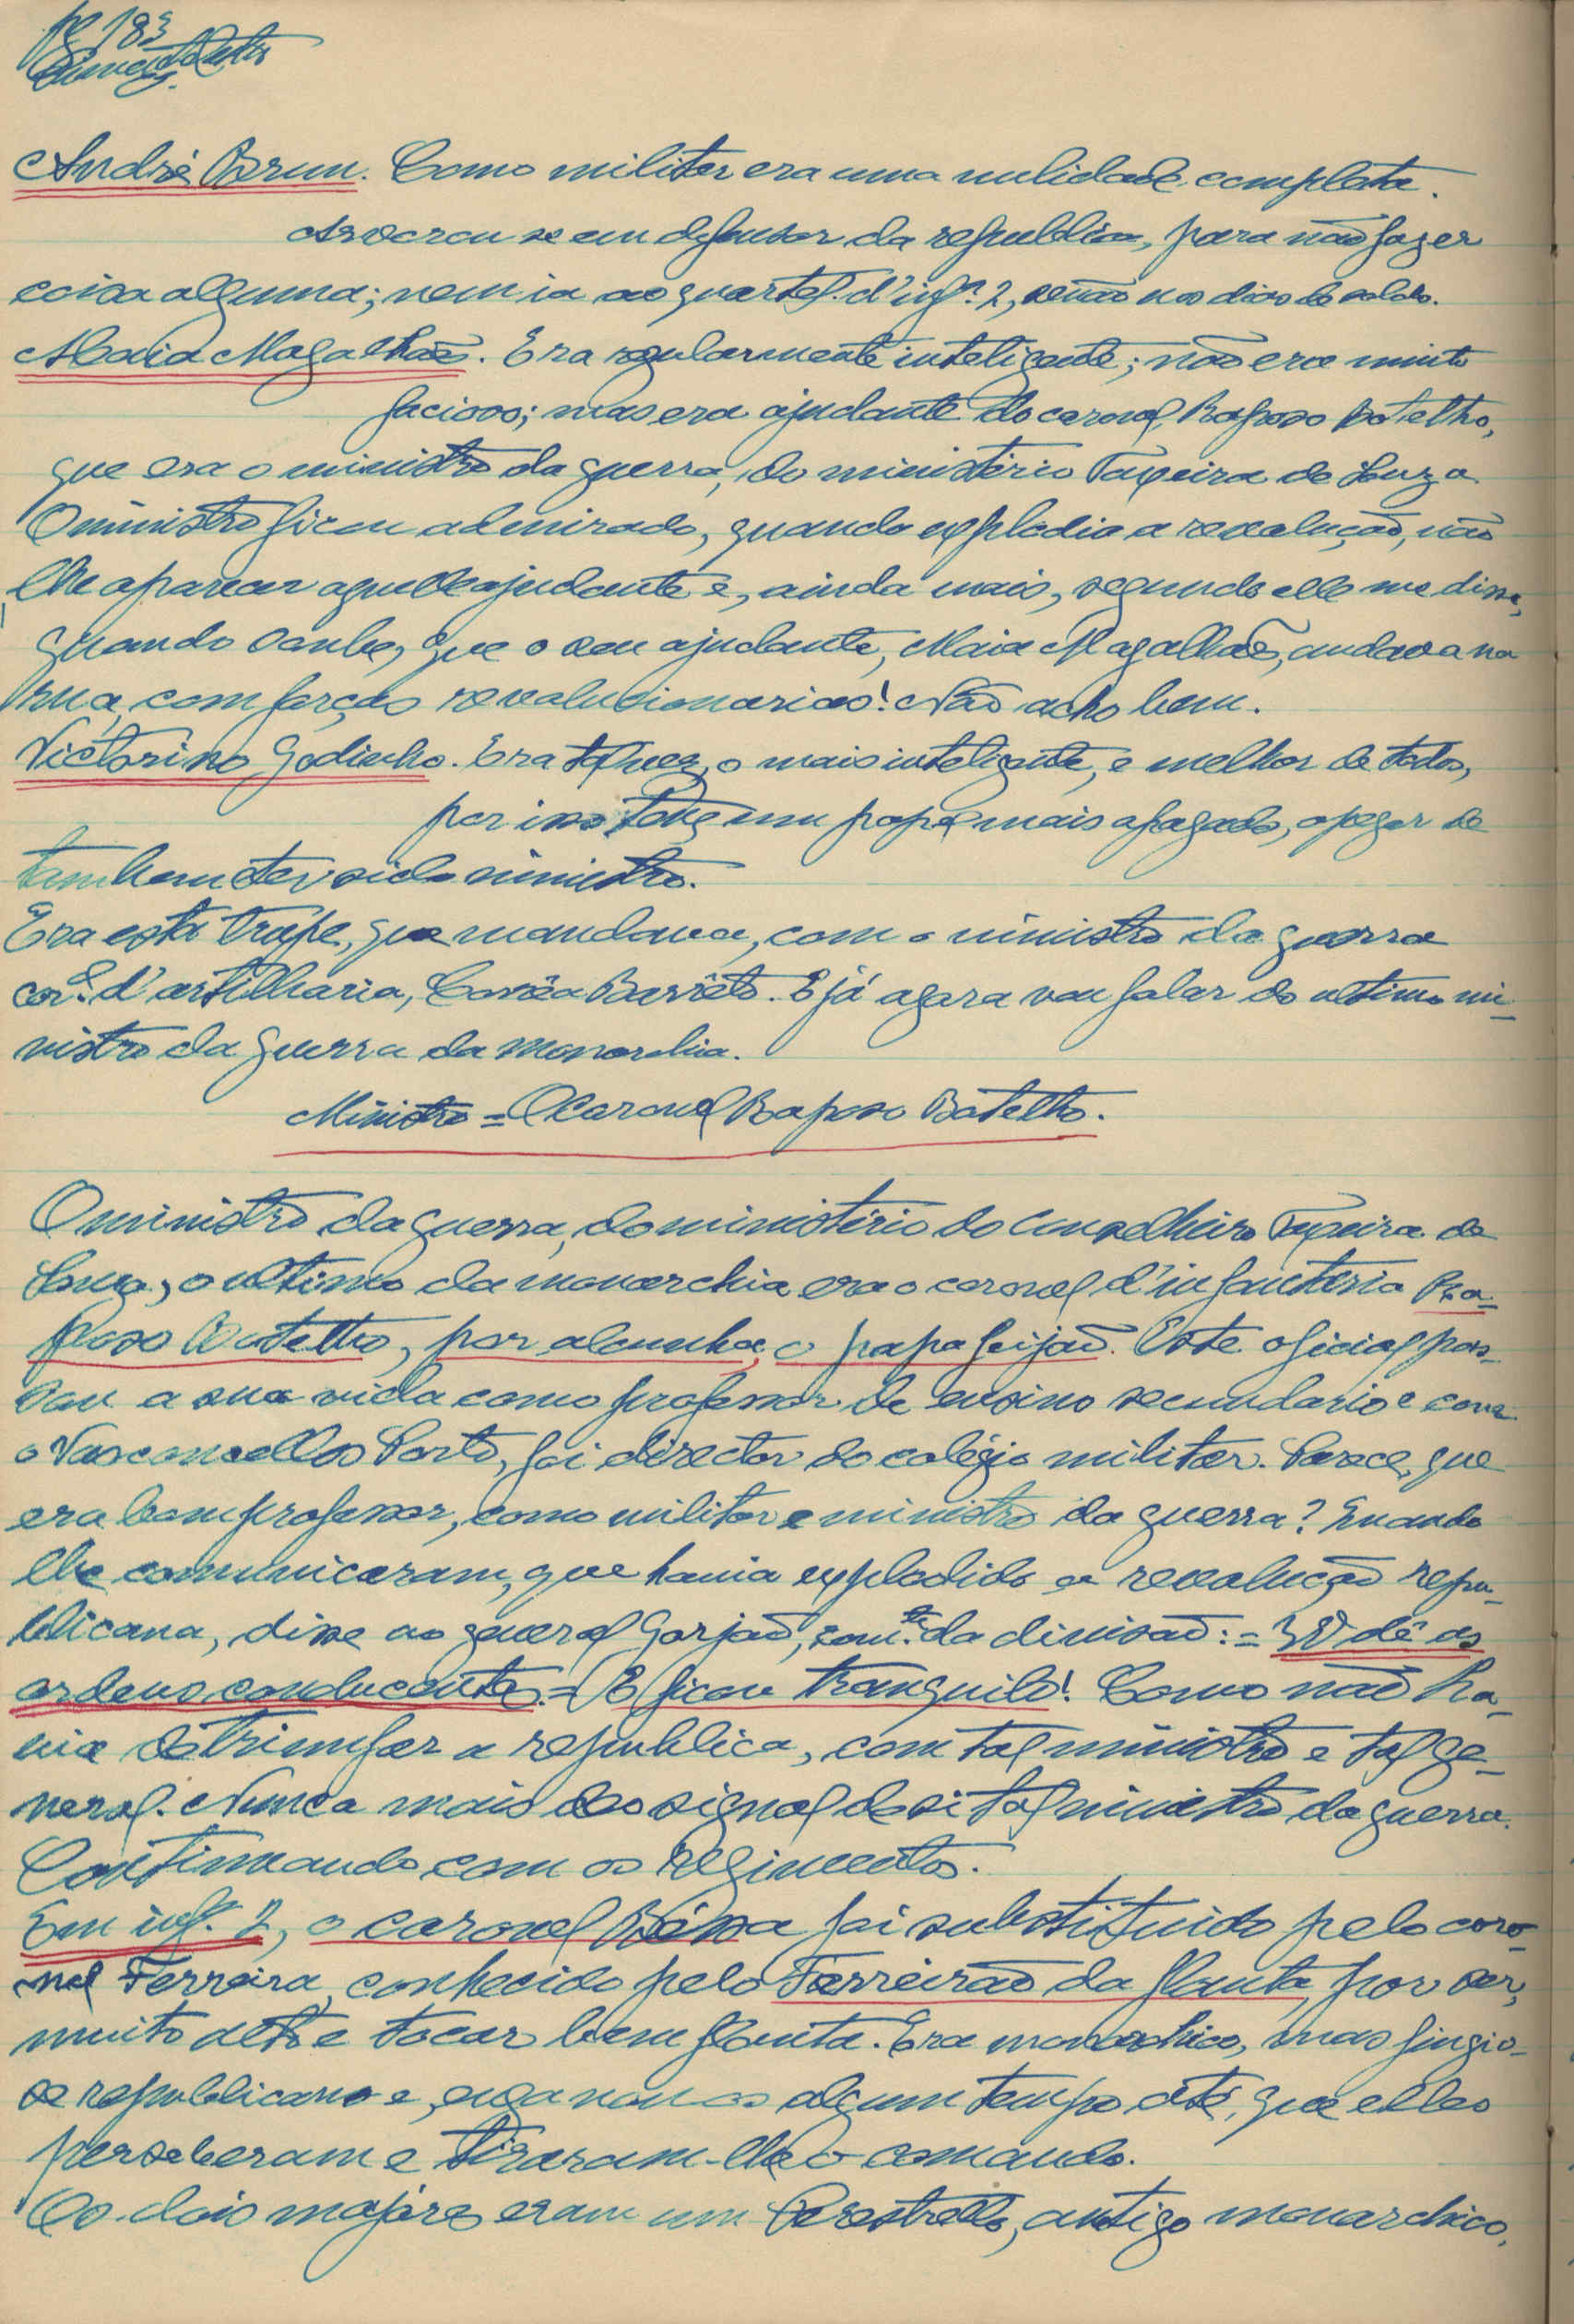 pg 183
André Brun. Como militar era uma nulidade completa.
Arvorou se em defensor da republica, para não fazer
coisa alguma; nem ia ao quartel d'infª. 2, senão nos dias de soldo.
Maia Magalhães. Era regularmente inteligente; não era muito
facioso; mas era ajudante do coronel Raposo Botelho,
que era o ministro da guerra, do ministério Teixeira de Souza
O ministro ficou admirado, quando explodio a revolução, não
lhe aparecer aquelle ajudante e, ainda mais, segundo elle me disse,
quando soube, que o seu ajudante, Maia Magalhães, andava na
rua, com forças revolucionarias! Não acho bem.
Victorino Godinho. Era talvez, o mais inteligente, e melhor de todos,
por isso teve um papel mais apagado, apezar de
tambem ter sido ministro.
Era esta trupe, que mandava, com o ministro da guerra
corel. d'artilharia, Corrêa Barrêto. E já agora vou falar do ultimo mi-
nistro da guerra da monarchia.
Ministro = O Coronel Raposo Botelho.
O ministro da guerra, do ministério do Conselheiro Teixeira de
Souza, o ultimo da monarchia era o coronel d'infanteria Ra-
poso Botelho, por alcunha, o papa feijão. Este oficial pas-
sou a sua vida como professor de ensino secundario e como
o Vasconcellos Porto, foi director do colégio militar. Parece, que
era bom professor, como militar e ministro da guerra? Quando
lhe comunicaram, que havia explodido a revolução repu-
blicana, disse ao general Gorjão, comte. da divisão: = V dê as
ordens conducentes. = E ficou tranquilo! Como não ha-
via de triumfar a republica, com tal ministro e tal ge-
neral. Nunca mais deo signal de si tal ministro da guerra.
Continuando com os regimentos.
Em infª. 2, o coronel Béssa foi substituido pelo coro-
nel Ferreira, conhecido pelo Farreirão da flauta, por ser,
muito alto e tocar bem flauta. Era monarchico, mas fingio-
se republicano e, enganou os algum tempo até, que elles
perseberam e tiraram-lhe o comando.
Os dois majóres eram um Perestrello, antigo monarchico,